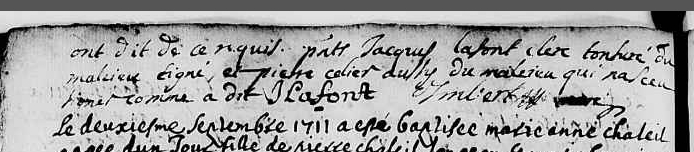 ont dit de ce requis. pnts Jacques lafont clerc tonsuré du
malzieu signé, et pierre celier aussy du malzieu qui na sceu
signer comme a dit JLafont Imbert
Le deuxiesme septembre 1711 a esté baptisee marie anne chaleil
agee dun Jour fille de pierre chaleil